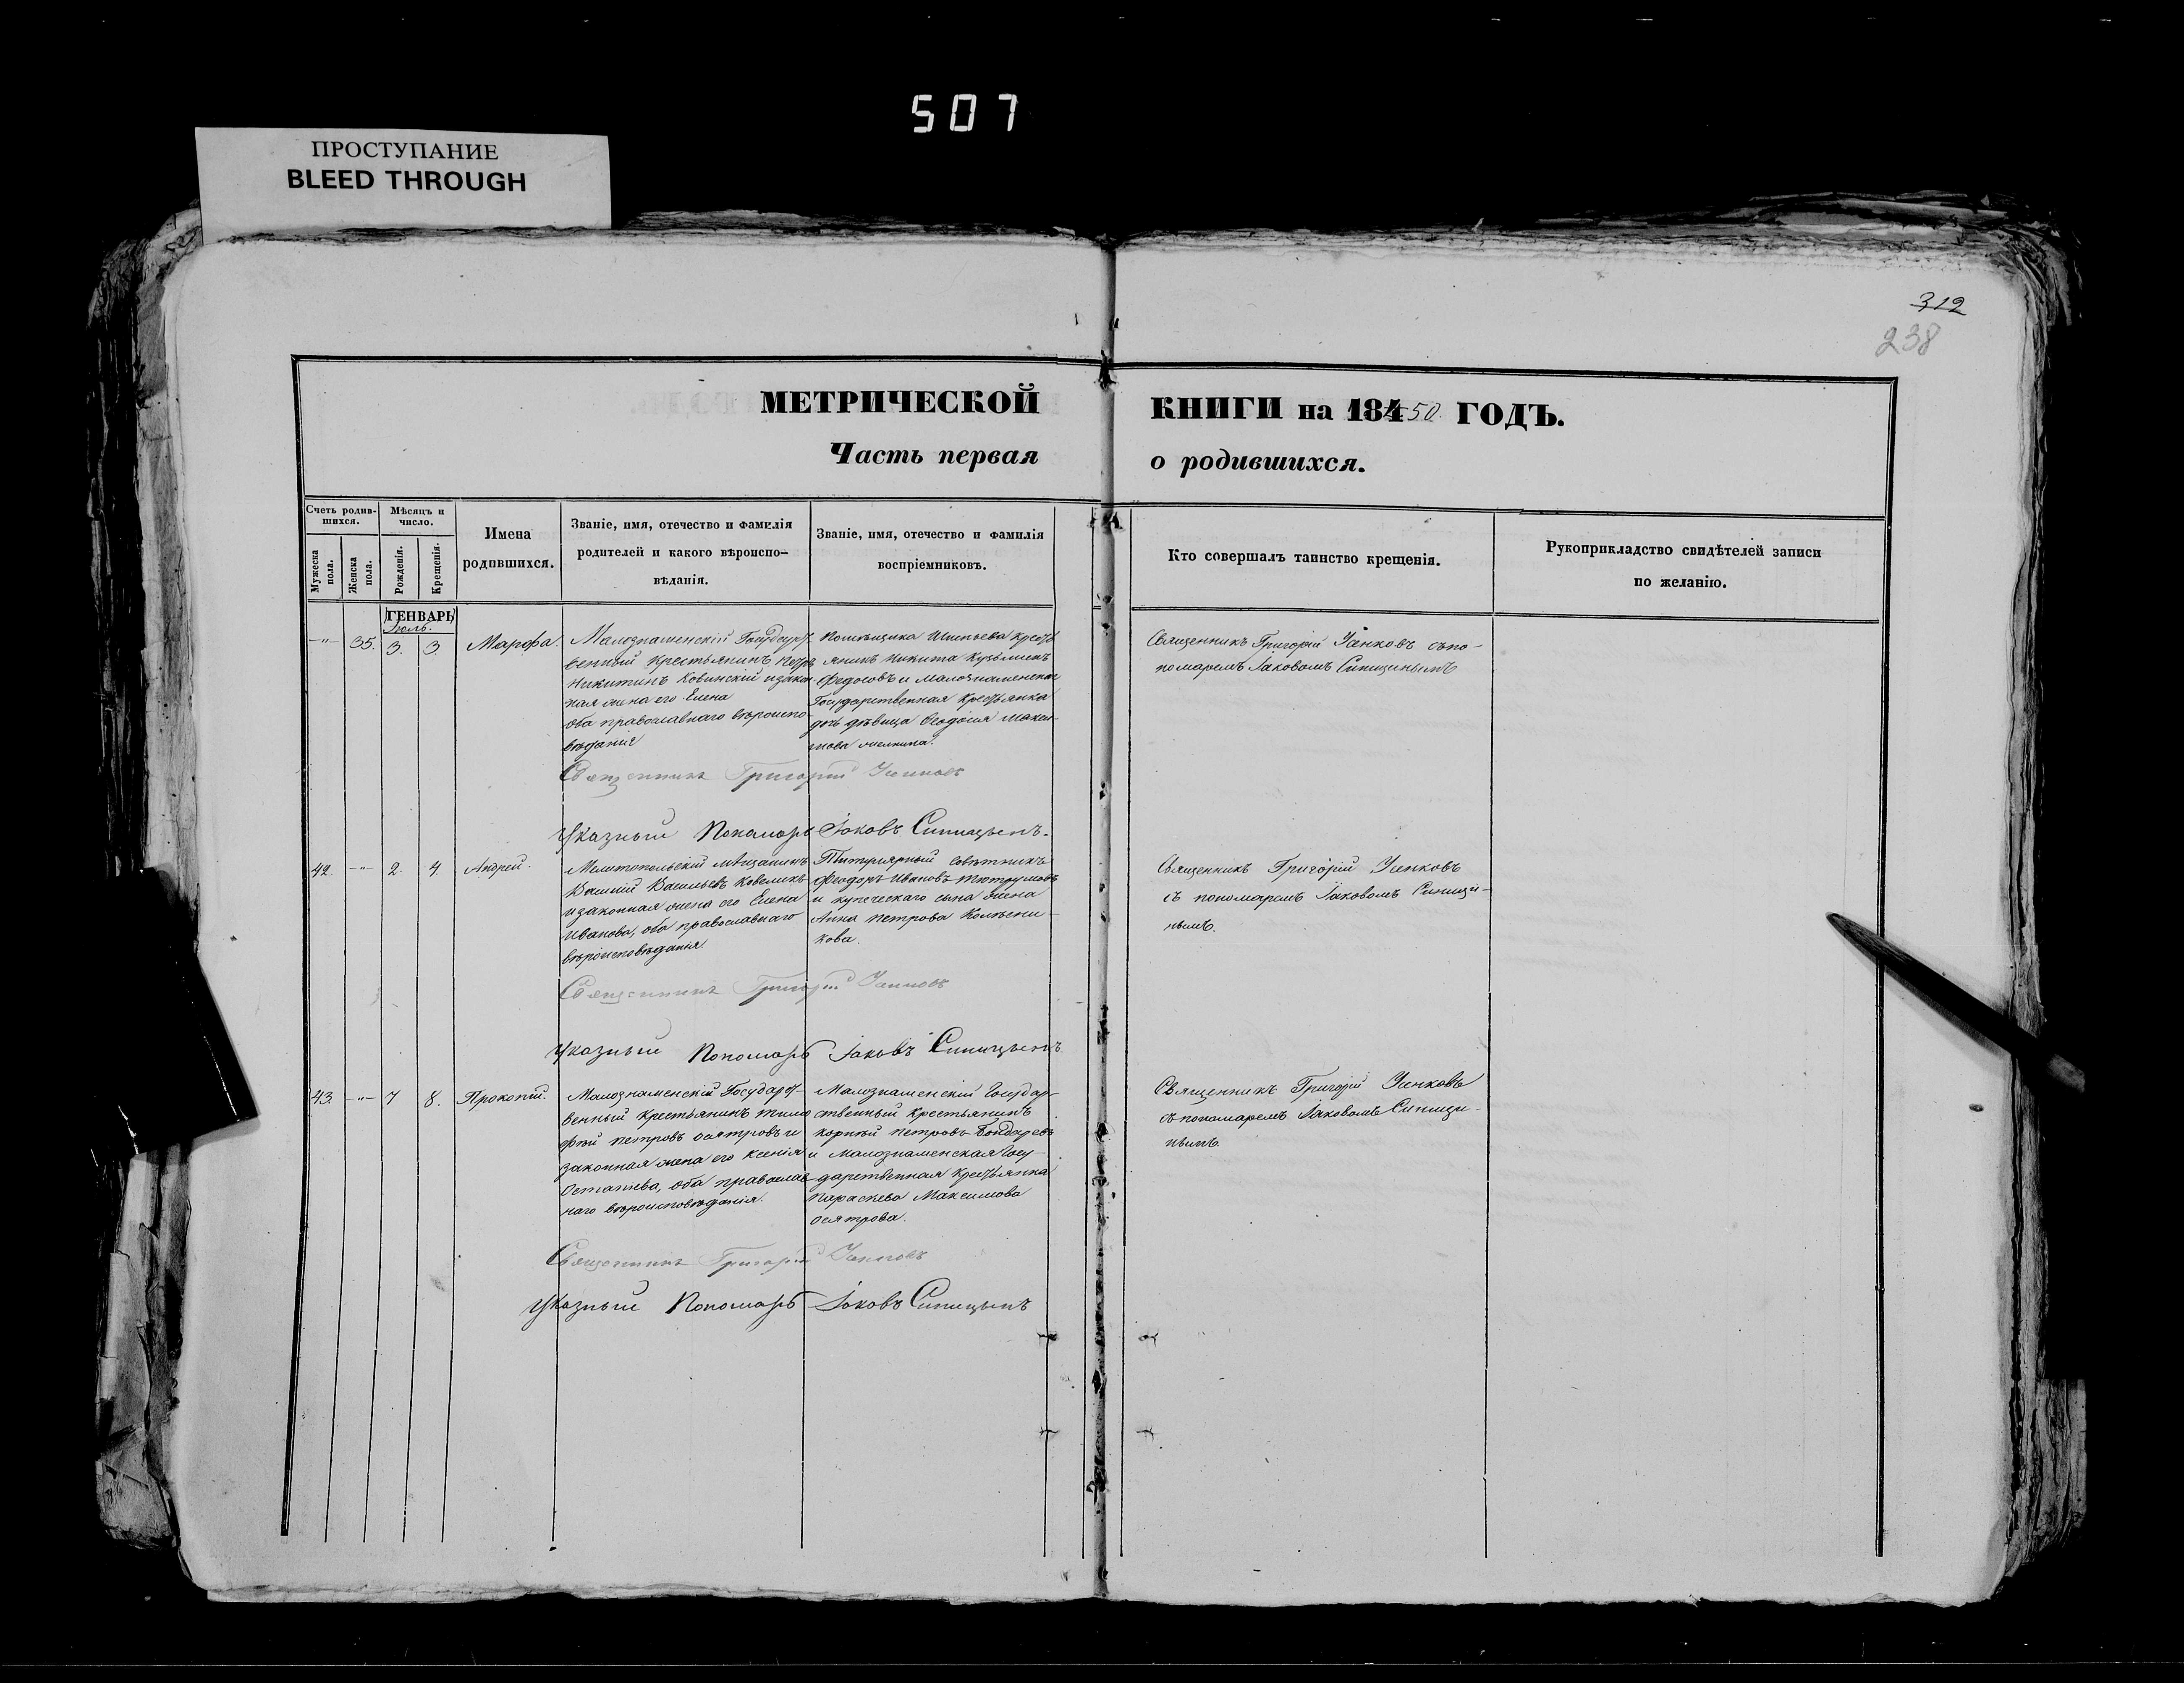 507
ПРОСТУПАНИЕ
BLEED THROUGH
312
238
МЕТРИЧЕСКОЙ КНИГИ на 184 50. ГОДЪ.
Часть первая о родившихся.
Счетъ родив-
шихся.
Мѣсяцъ и
число.
Мужеска
пола.
Женска
пола.
Рожденія.
Крещенія.
Имена
родившихся.
Званіе, имя, отечество и фамилія
родителей и какого вѣроиспо-
вѣданія.
Званіе, имя, отечество и фамилія
воспріемниковъ.
Кто совершалъ таинство крещенія.
Рукоприкладство свидѣтелей записи
по желанію.
ГЕНВАРЬ
Іюль.
-"- 35. 3. 3. Марфа.
Малознаменскій Государст
венный Крестьянинъ Петръ
Никитинъ и закон-
ная жена его Елена
оба православнаго вѣроиспо-
вѣданія
Помѣщика Крестья
янинъ Никита Кузьминъ
Федосовъ и Малознаменская
Государственная Крестьянка
дочь дѣвица Ѳеодосія Макси-
мова
Священникъ Григорій съ по-
номаремъ Іаковомъ Синицинымъ
Священникъ Григорій
Указный Пономарь Іаковъ Синицынъ.
42. -"- 2. 4. Андрей.
Мелитопольскій мѣщанинъ
Василій Васильевъ
и законная жена его Елена
Иванова, оба православнаго
вѣроисповѣданія.
Титулярный Совѣтникъ
Феодоръ Ивановъ
и купеческаго сына жена
Анна Петрова Колѣсни-
кова.
Священникъ Григорій
съ пономаремъ Іаковомъ Синици-
нымъ.
Священникъ Григорій
Указный Пономарь Іаковъ Синицынъ
43. -"- 7 8. Прокопій.
Малознаменскій Государст-
венный Крестьянинъ Тимо
фѣй Петровъ Осятровъ и
законная жена его Ксенія
Остапіева, оба православ-
наго вѣроисповѣданія.
Малознаменскій Государ-
ственный Крестьянинъ
Корнѣй Петровъ Бондаревъ
и Малознаменская Госу-
дарственная Крестьянка
Параскева Максимова
Осятрова.
Священникъ Григорій
съ пономаремъ Іаковомъ Синици-
нымъ.
Священникъ Григорій
Указный Пономарь Іаковъ Синицынъ